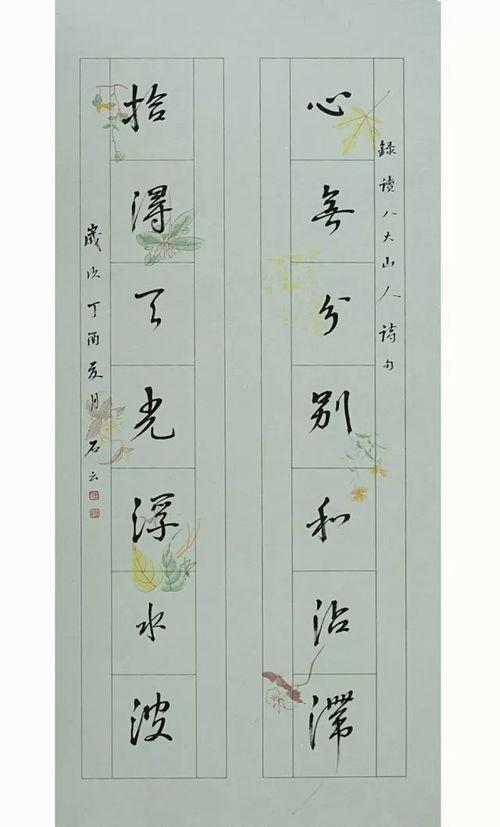 錄讀八大山人詩句
心無分别和沾滯
拾得天光浮水波
歲次丁酉夏月石云